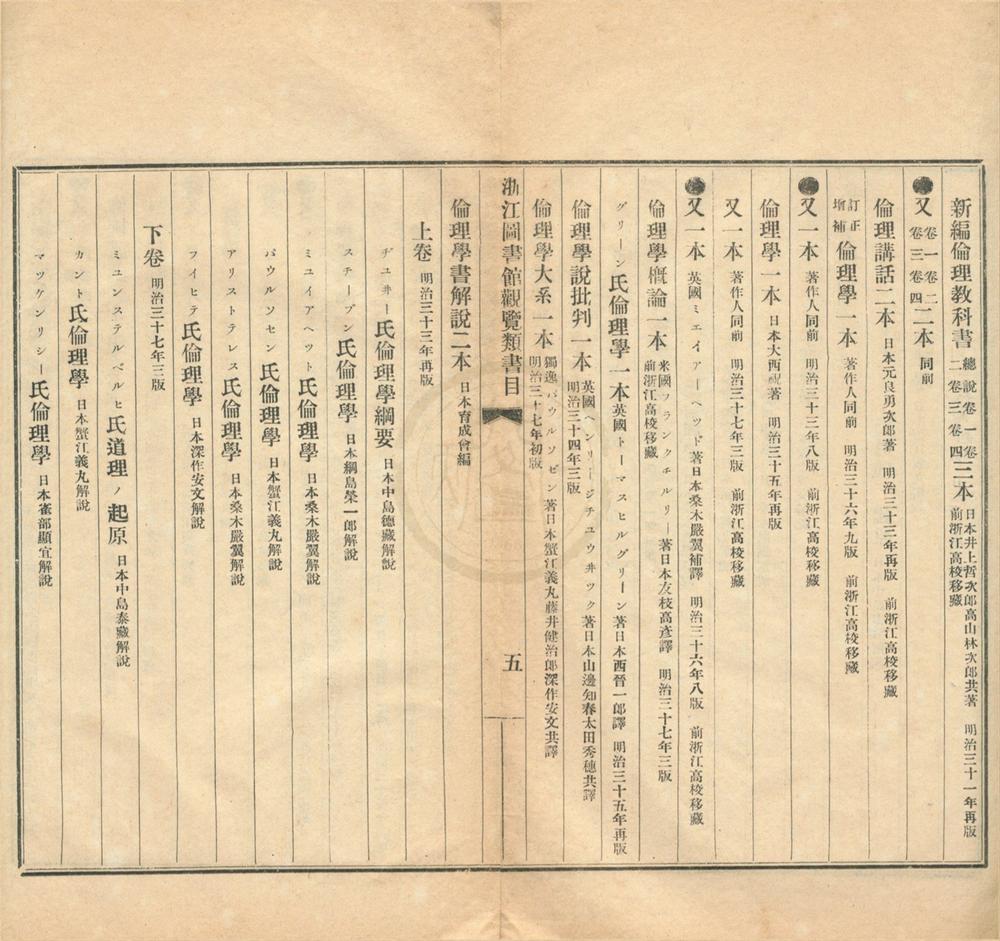 新編倫理教科書 總說卷一卷二卷三卷四 三本 日本井上哲次郎高山林次郎共著 明治三十一年再版 前浙江高校移藏
又 卷一卷二卷三卷四 二本 同前
倫理講話二本 日本元良勇次郎著 明治三十三年再版 前浙江高校移藏
訂正增補 倫理學一本 著作人同前 明治三十六年九版 前浙江高校移藏
又一本 著作人同前 明治三十三年八版 前浙江高校移藏
倫理學一本 日本大西祝著 明治三十五年再版
又一本 著作人同前 明治三十七年三版 前浙江高校移藏
又一本 英國ミユイアーヘツド著日本桑木嚴翼補譯 明治三十六年八版 前浙江高校移藏
倫理學概論一本 米國フランクチルリー著日本友枝高彥譯 明治三十七年三版 前浙江高校移藏
グリーン氏倫理學一本 英國トーマスヒルグリーン著日本西晉一郎譯 明治三十五年再版
倫理學說批判一本 英國ヘンリージチユウ井ツク著日本山邊知春太田秀穗共譯 明治三十四年三版
倫理學大系一本 獨逸パウルソゼン著日本蟹江義丸藤井健治郎深作安文共譯 明治三十七年初版
浙江圖書館觀覽類書目 五
倫理學書解說二本 日本育成會編
上卷 明治三十三年再版
ヂユ井ー氏倫理學綱要 日本中島德藏解說
スチーブン氏倫理學 日本綱島榮一郎解說
ミユイアヘツト氏倫理學 日本桑木嚴翼解說
パウルソセン氏倫理學 日本蟹江義丸解說
アリストテレス氏倫理學 日本桑木嚴翼解說
フイヒテ氏倫理學 日本深作安文解說
下卷 明治三十七年三版
ミユンステルベルヒ氏道理ノ起原 日本中島泰藏解說
カント氏倫理學 日本蟹江義丸解說
マツケンリシー氏倫理學 日本雀部顯宜解說